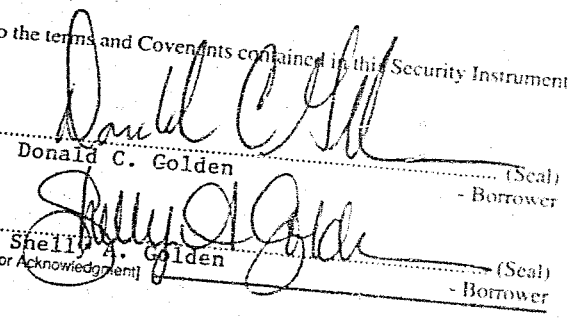 o the terms and Covenants contained in this Security Instrument
Donald C. Golden
Donald C. Golden (Seal)
- Borrower
Shelly A. Golden
Shelly A. Golden (Seal)
or Acknowledgment]
- Borrower